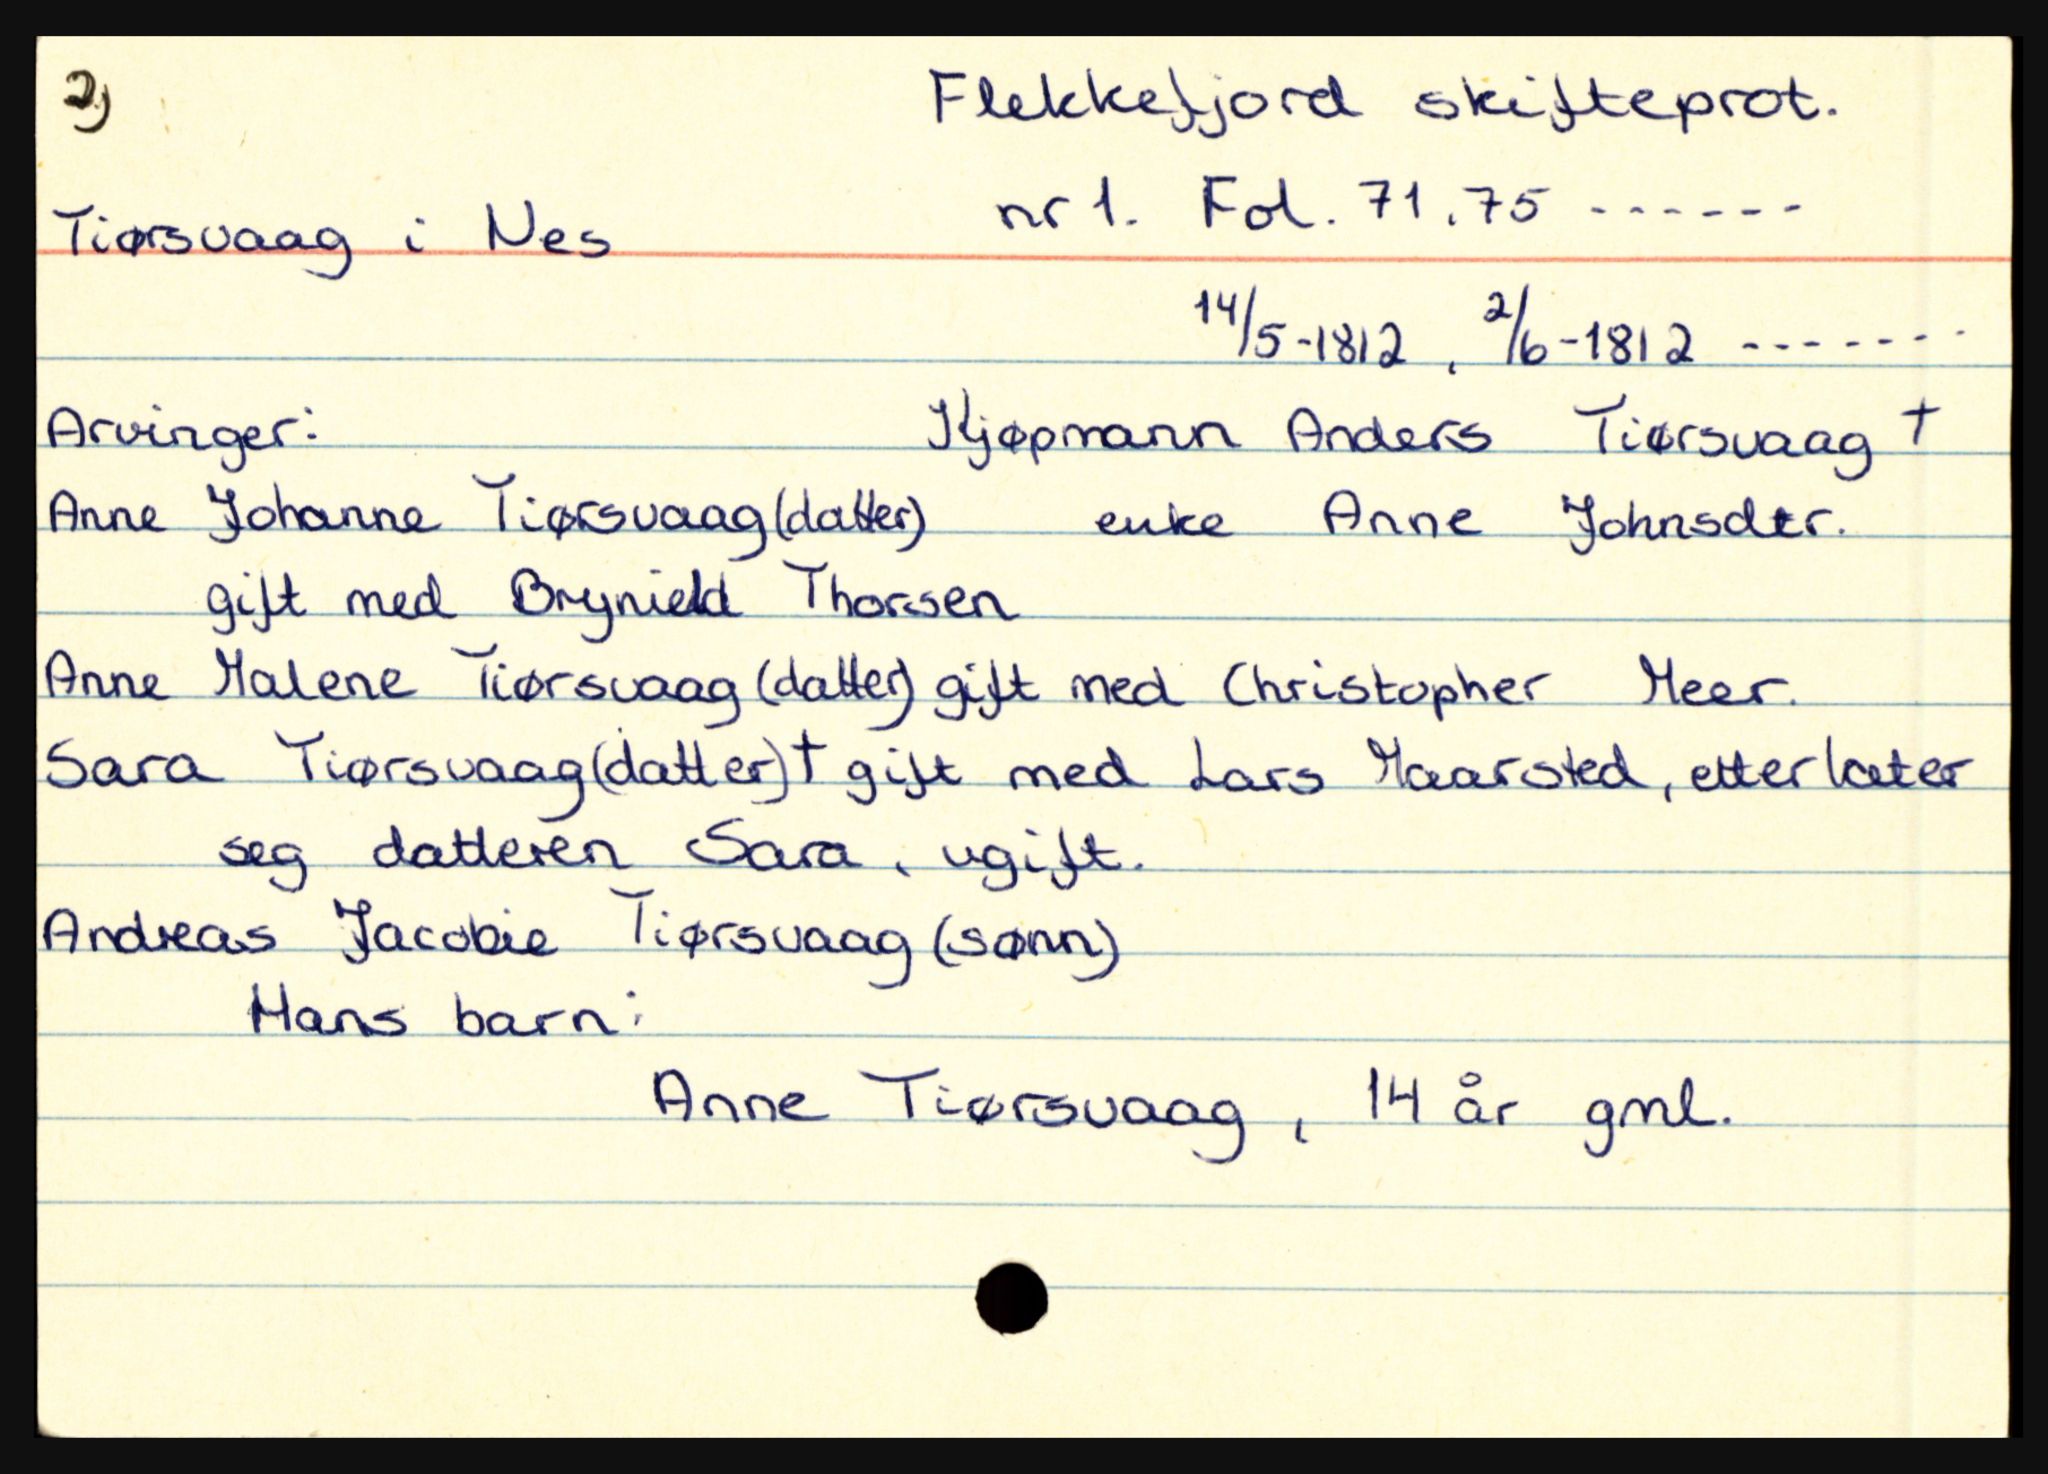 2)
Flekkefjord skifteprot.
Tiørsvaag i Nes
nr 1. Fol. 71, 75 ------
14/5-1812, 2/6-1812 -------
Arvinger:
Kjøpmann Anders Tiørsvaag †
Anne Johanne Tiørsvaag (datter)
enke Anne Johnsdtr.
gift med Brynield Thorsen
Anne Malene Tiørsvaag (datter) gift med Christopher Meer.
Sara Tiørsvaag (datter) † gift med Lars Maarsted, etterlater
seg datteren Sara, ugift.
Andreas Jacobie Tiørsvaag (sønn)
Hans barn:
Anne Tiørsvaag, 14 år gml.